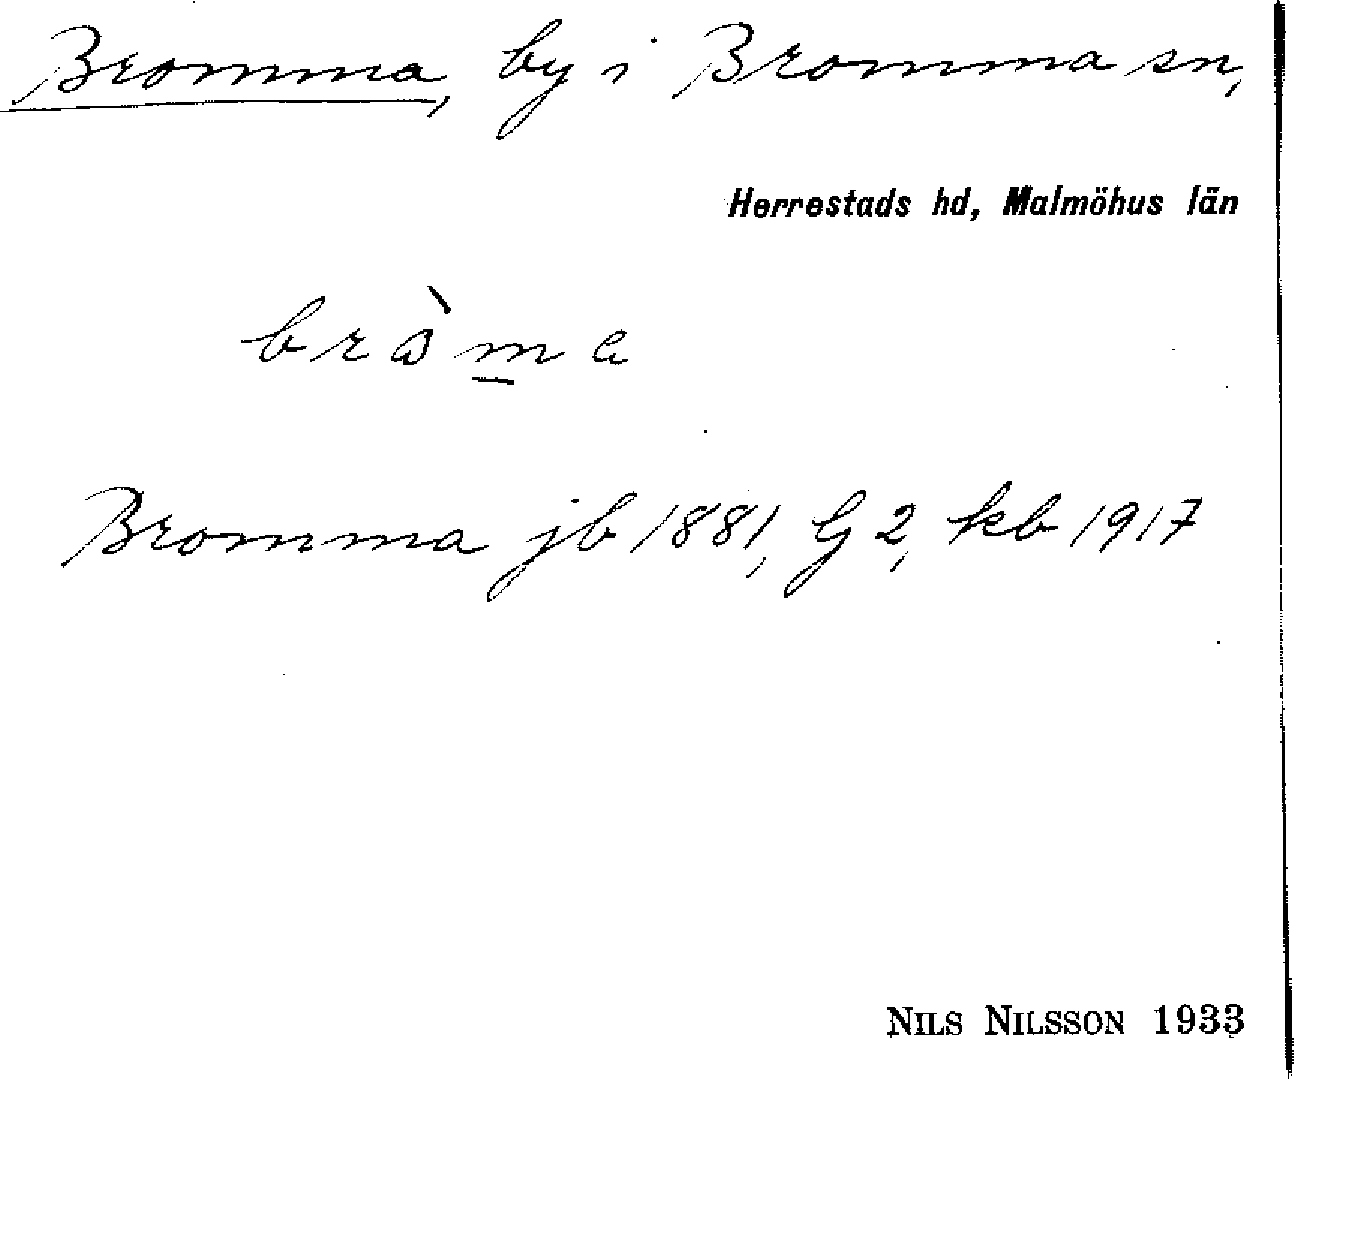 Bromma, by i Bromma sn,
Herrestads hd, Malmöhus län
Bromma jb 1881, G 2, kb 1917
NILS NILSSON 1933